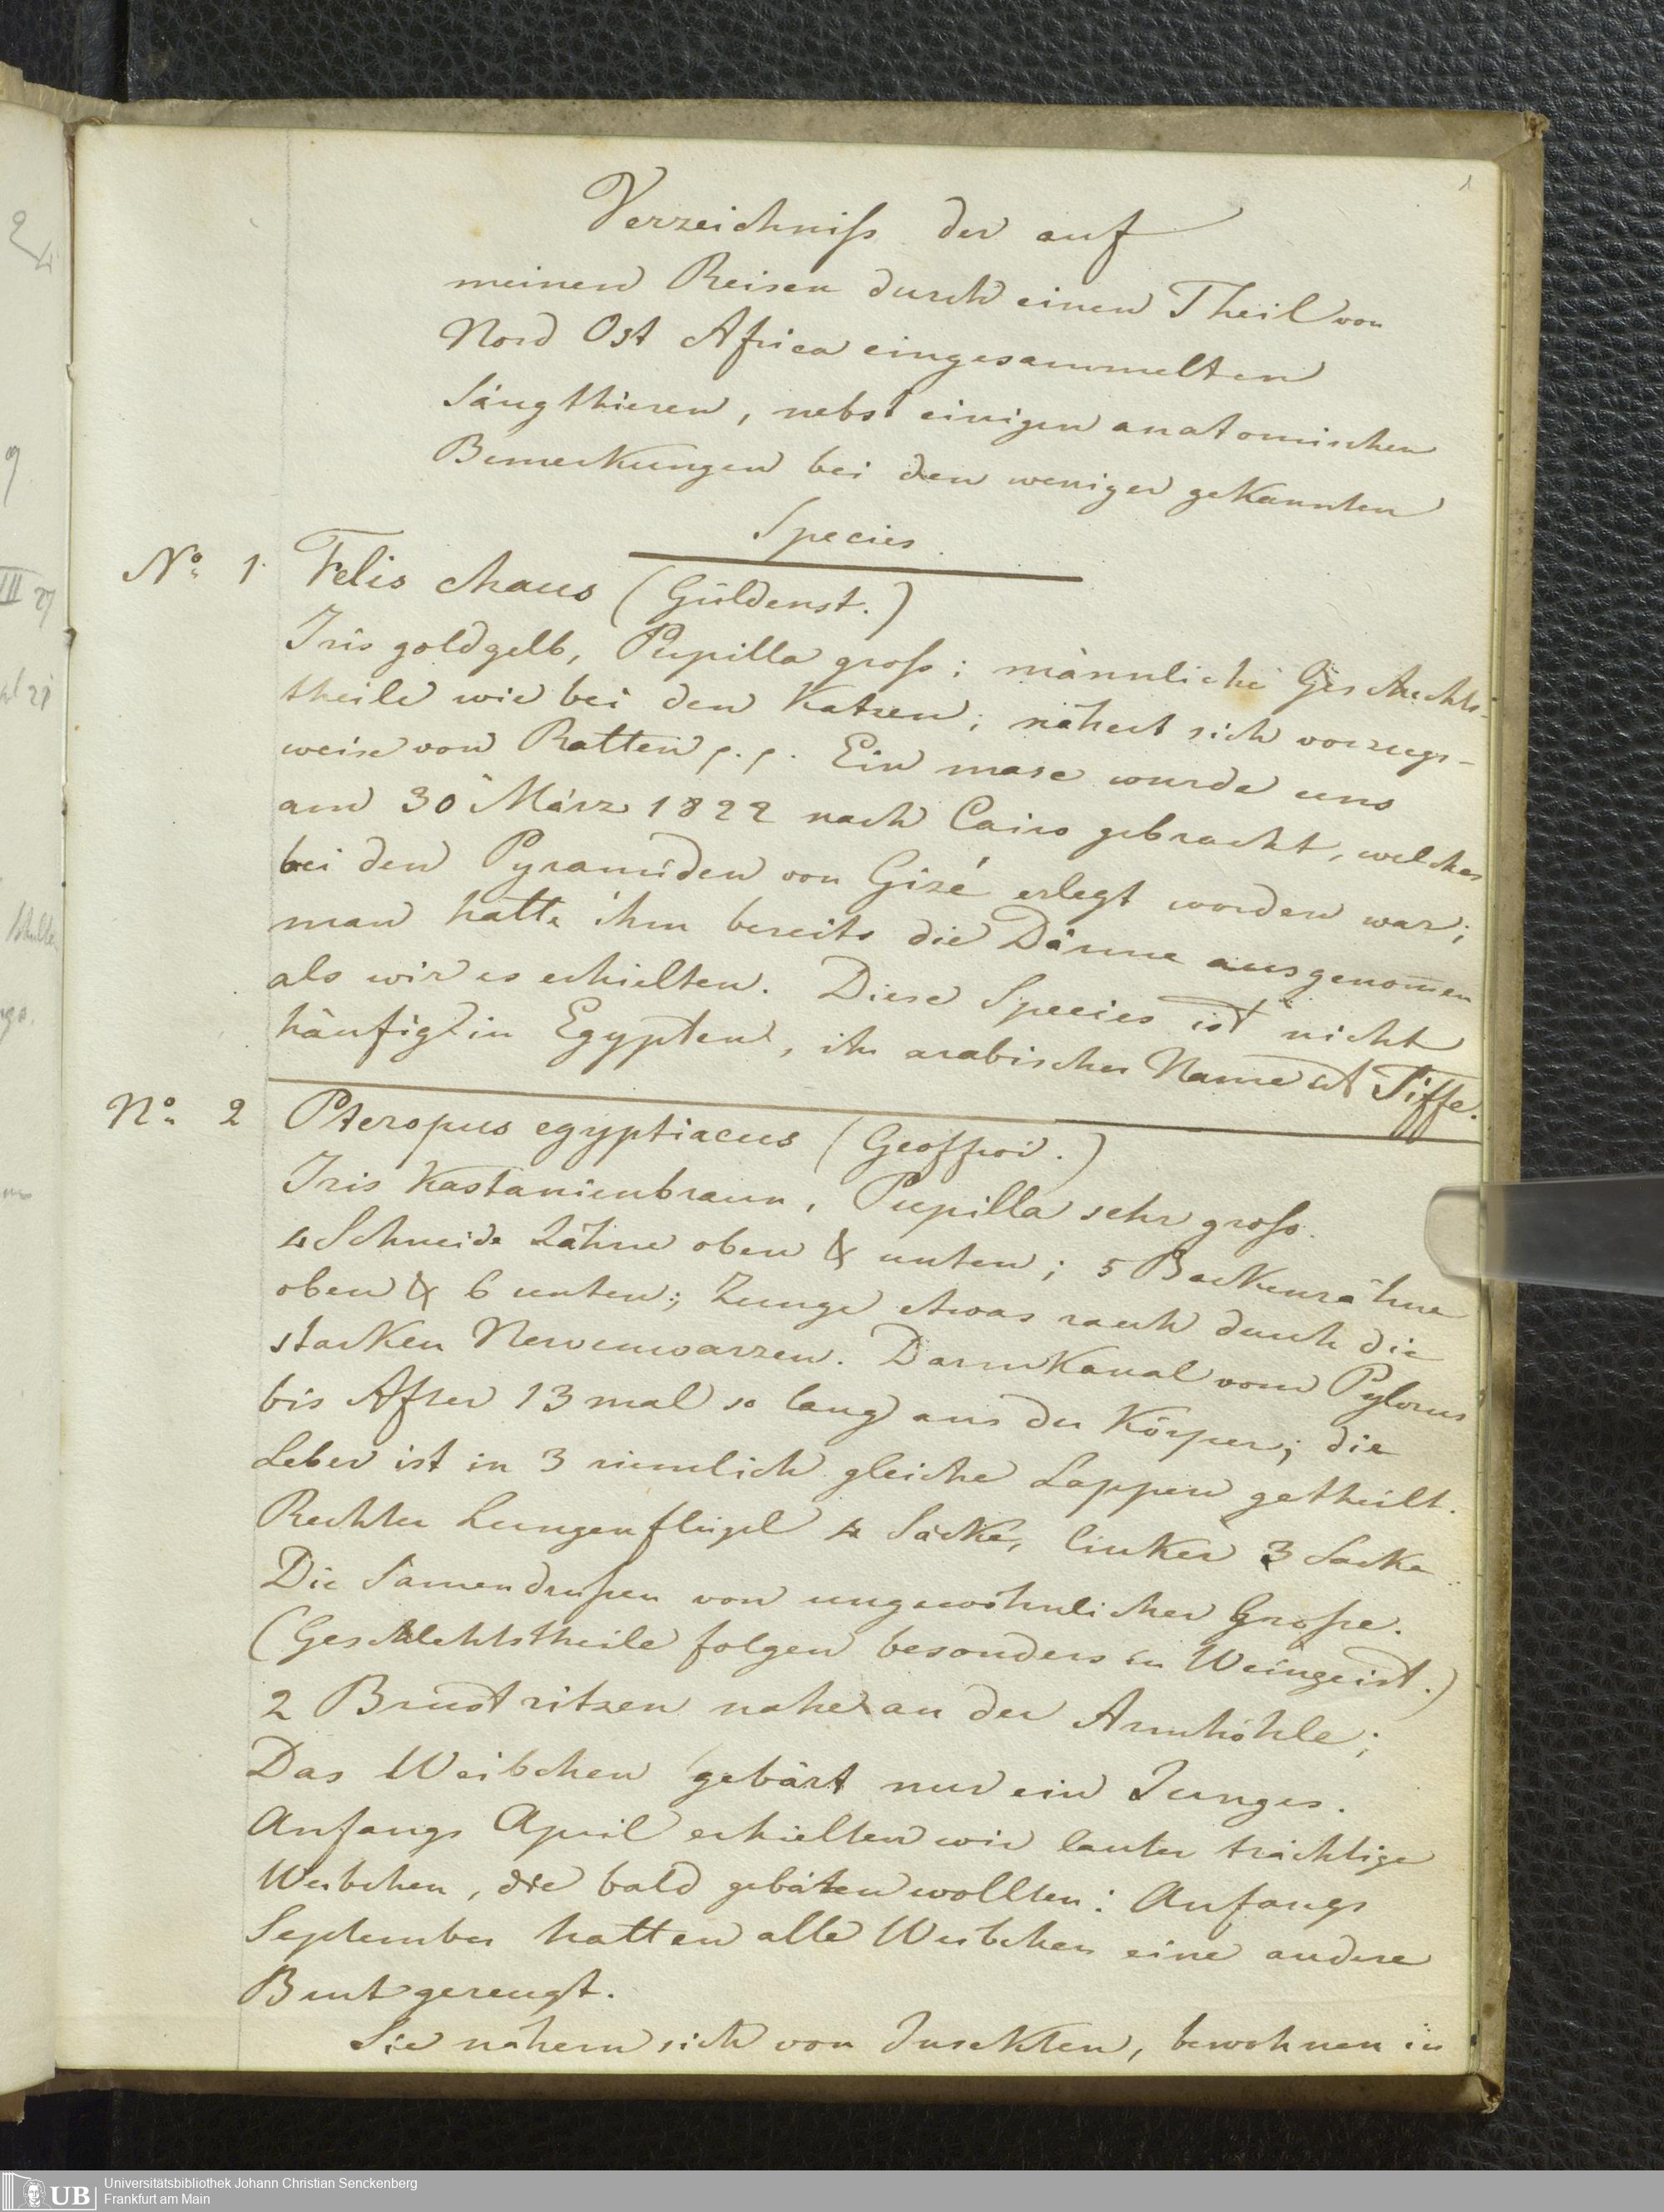 1
Verzeichniſs der auf
meinen Reisen durch einen Theil von
Nord Ost Africa eingesammelten
Säugthieren, nebst einigen anatomischen
Bemerkungen bei den weniger gekannten
Species
Nº 1 Felis chaus (Güldenst.)
Iris goldgelb, Pupilla groſs; männliche Geschlechts-
theile wie bei den Katzen; nähert sich vorzugs-
weise von Ratten p.p. Ein masc wurde uns
am 30 März 1822 nach Cairo gebracht, welches
bei den Pyramiden von Gizé erlegt worden war;
man hatte ihm bereits die Därme ausgenom̅en
als wir es erhielten. Diese Species ist nicht
häufig in Egypten, ihr arabischer Name ist Tiffe.
Nº 2 Pteropus egyptiacus (Geoffroi.)
Iris Kastanienbraun, Pupilla sehr groſs.
4 Schneide Zähne oben & unten; 5 Backenzähne
oben & 6 unten; Zunge etwas rauh durch die
starken Nervenwarzen. Darmkanal vom Pylorus
bis After 13 mal so lang als der Körper; die
Leber ist in 3 ziemlich gleiche Lappen getheilt.
Rechter Lungenflügel 4 Säcke, linker 3 Säcke
Die Samendruſsen von ungewöhnlicher Groſse.
(Geschlechtstheile folgen besonders in Weingeist.)
2 Brustzitzen nahe an der Armhöhle;
Das Weibchen gebärt nur ein Junges.
Anfangs April erhielten wir lauter trächtige
Weibchen, die bald gebären wollten: Anfangs
September hatten alle Weibchen eine andere
Brut gezeugt.
Sie nähern sich von Insekten, bewohnen in
UB
Universitätsbibliothek Johann Christian Senckenberg
Frankfurt am Main